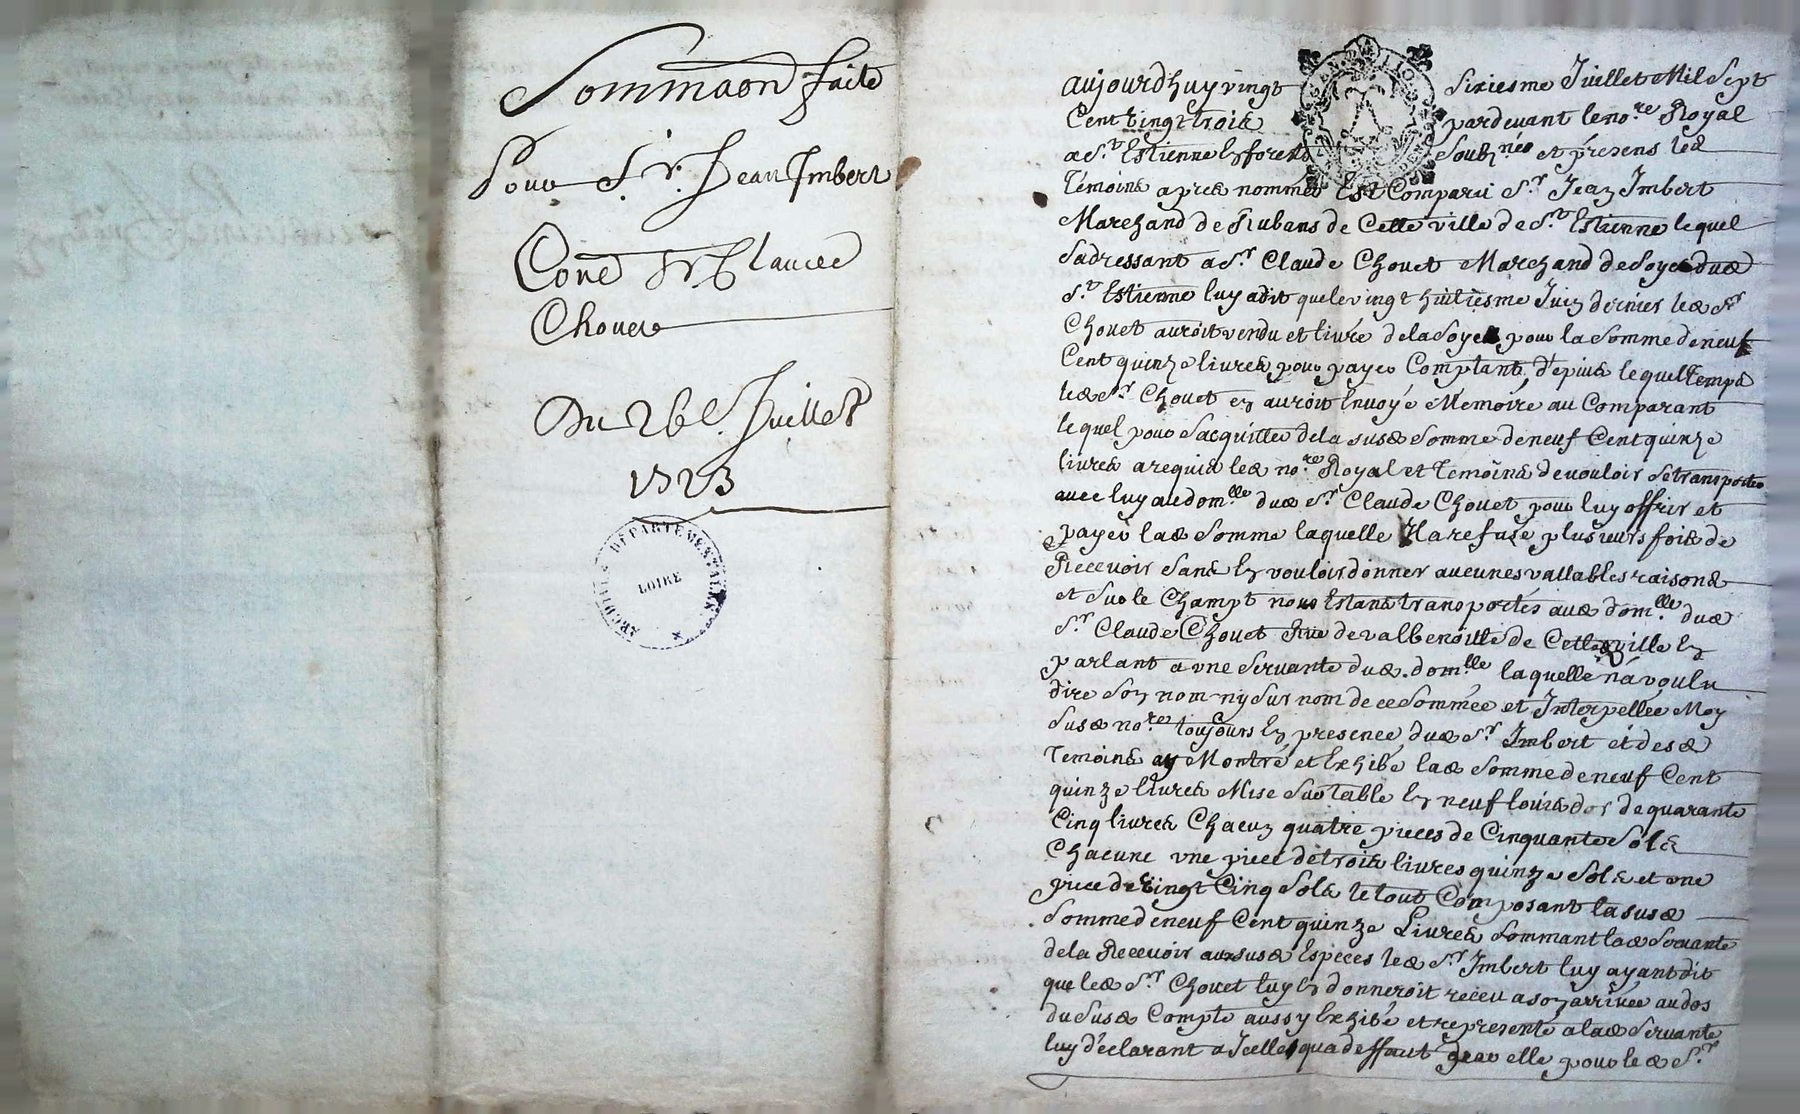 Sommaon faite
Pour Sr. Jean Imbert
Cone Sr Claude
Chouet
Du 26e. Juillet
1723
ARCHIVES DÉPARTEMENTALES
LOIRE
aujourdhuy vingt Sixiesme Juillet Mil Sept
Cent Vingt trois pardevant le nore Royal
a St Estienne En forets Soubznés et présens les
Témoins apres nommes Est Comparu Sr Jean Imbert
Marchand de Rubans de Cette ville de St Estienne lequel
Sadressant a Sr Claude Chouet Marchand de Soye dud
St Estienne luy a dit que le vingt huitiesme Juin dernier led Sr
Chouet auroit vendu et livré de la Soye pour la Somme de neuf
Cent quinze livres pour payer Comptant, depuis lequel temps
led Sr Chouet en auroit Envoyé Mémoire au Comparant
lequel pour Sacquitter de la susd Somme de neuf Cent quinze
livres a requis led nore Royal et Témoins de vouloir se transporter
avec luy au domlle dud Sr Claude Chouet pour luy offrir et
payer lad Somme laquelle Il a refusé plusieurs fois de
Recevoir Sans En vouloir donner aucunes vallables raisons
et Sur le Champt nous Estans transportés aud domlle dud
Sr Claude Chouet Rue de valbenoitte de Cette ville En
parlant a une Servante dud. domlle laquelle n'a voulu
dire Son nom ny Surnom de ce Sommée et Interpellée Moy
Susd nore toujours En presence dud Sr Imbert et desd
Temoins ay Montré et Exhibé lad Somme de neuf Cent
quinze livres Mise Sur table En neuf louis dor de quarante
Cinq livres Chacun quatre pieces de Cinquante Sols
Chacune une piece de trois livres quinze Sols et une
piece de Vingt Cinq Sols le tout Composant la susd
Somme de neuf Cent quinze Livres Sommant lad Servante
de la Recevoir aux susd Especes led Sr Imbert luy ayant dit
que led Sr Chouet luy En donneroit receu a son arrivée au dos
du Susd Compte aussy Exhibé et representé a lad Servante
luy déclarant a Icelle qua deffaut par elle pour led Sr